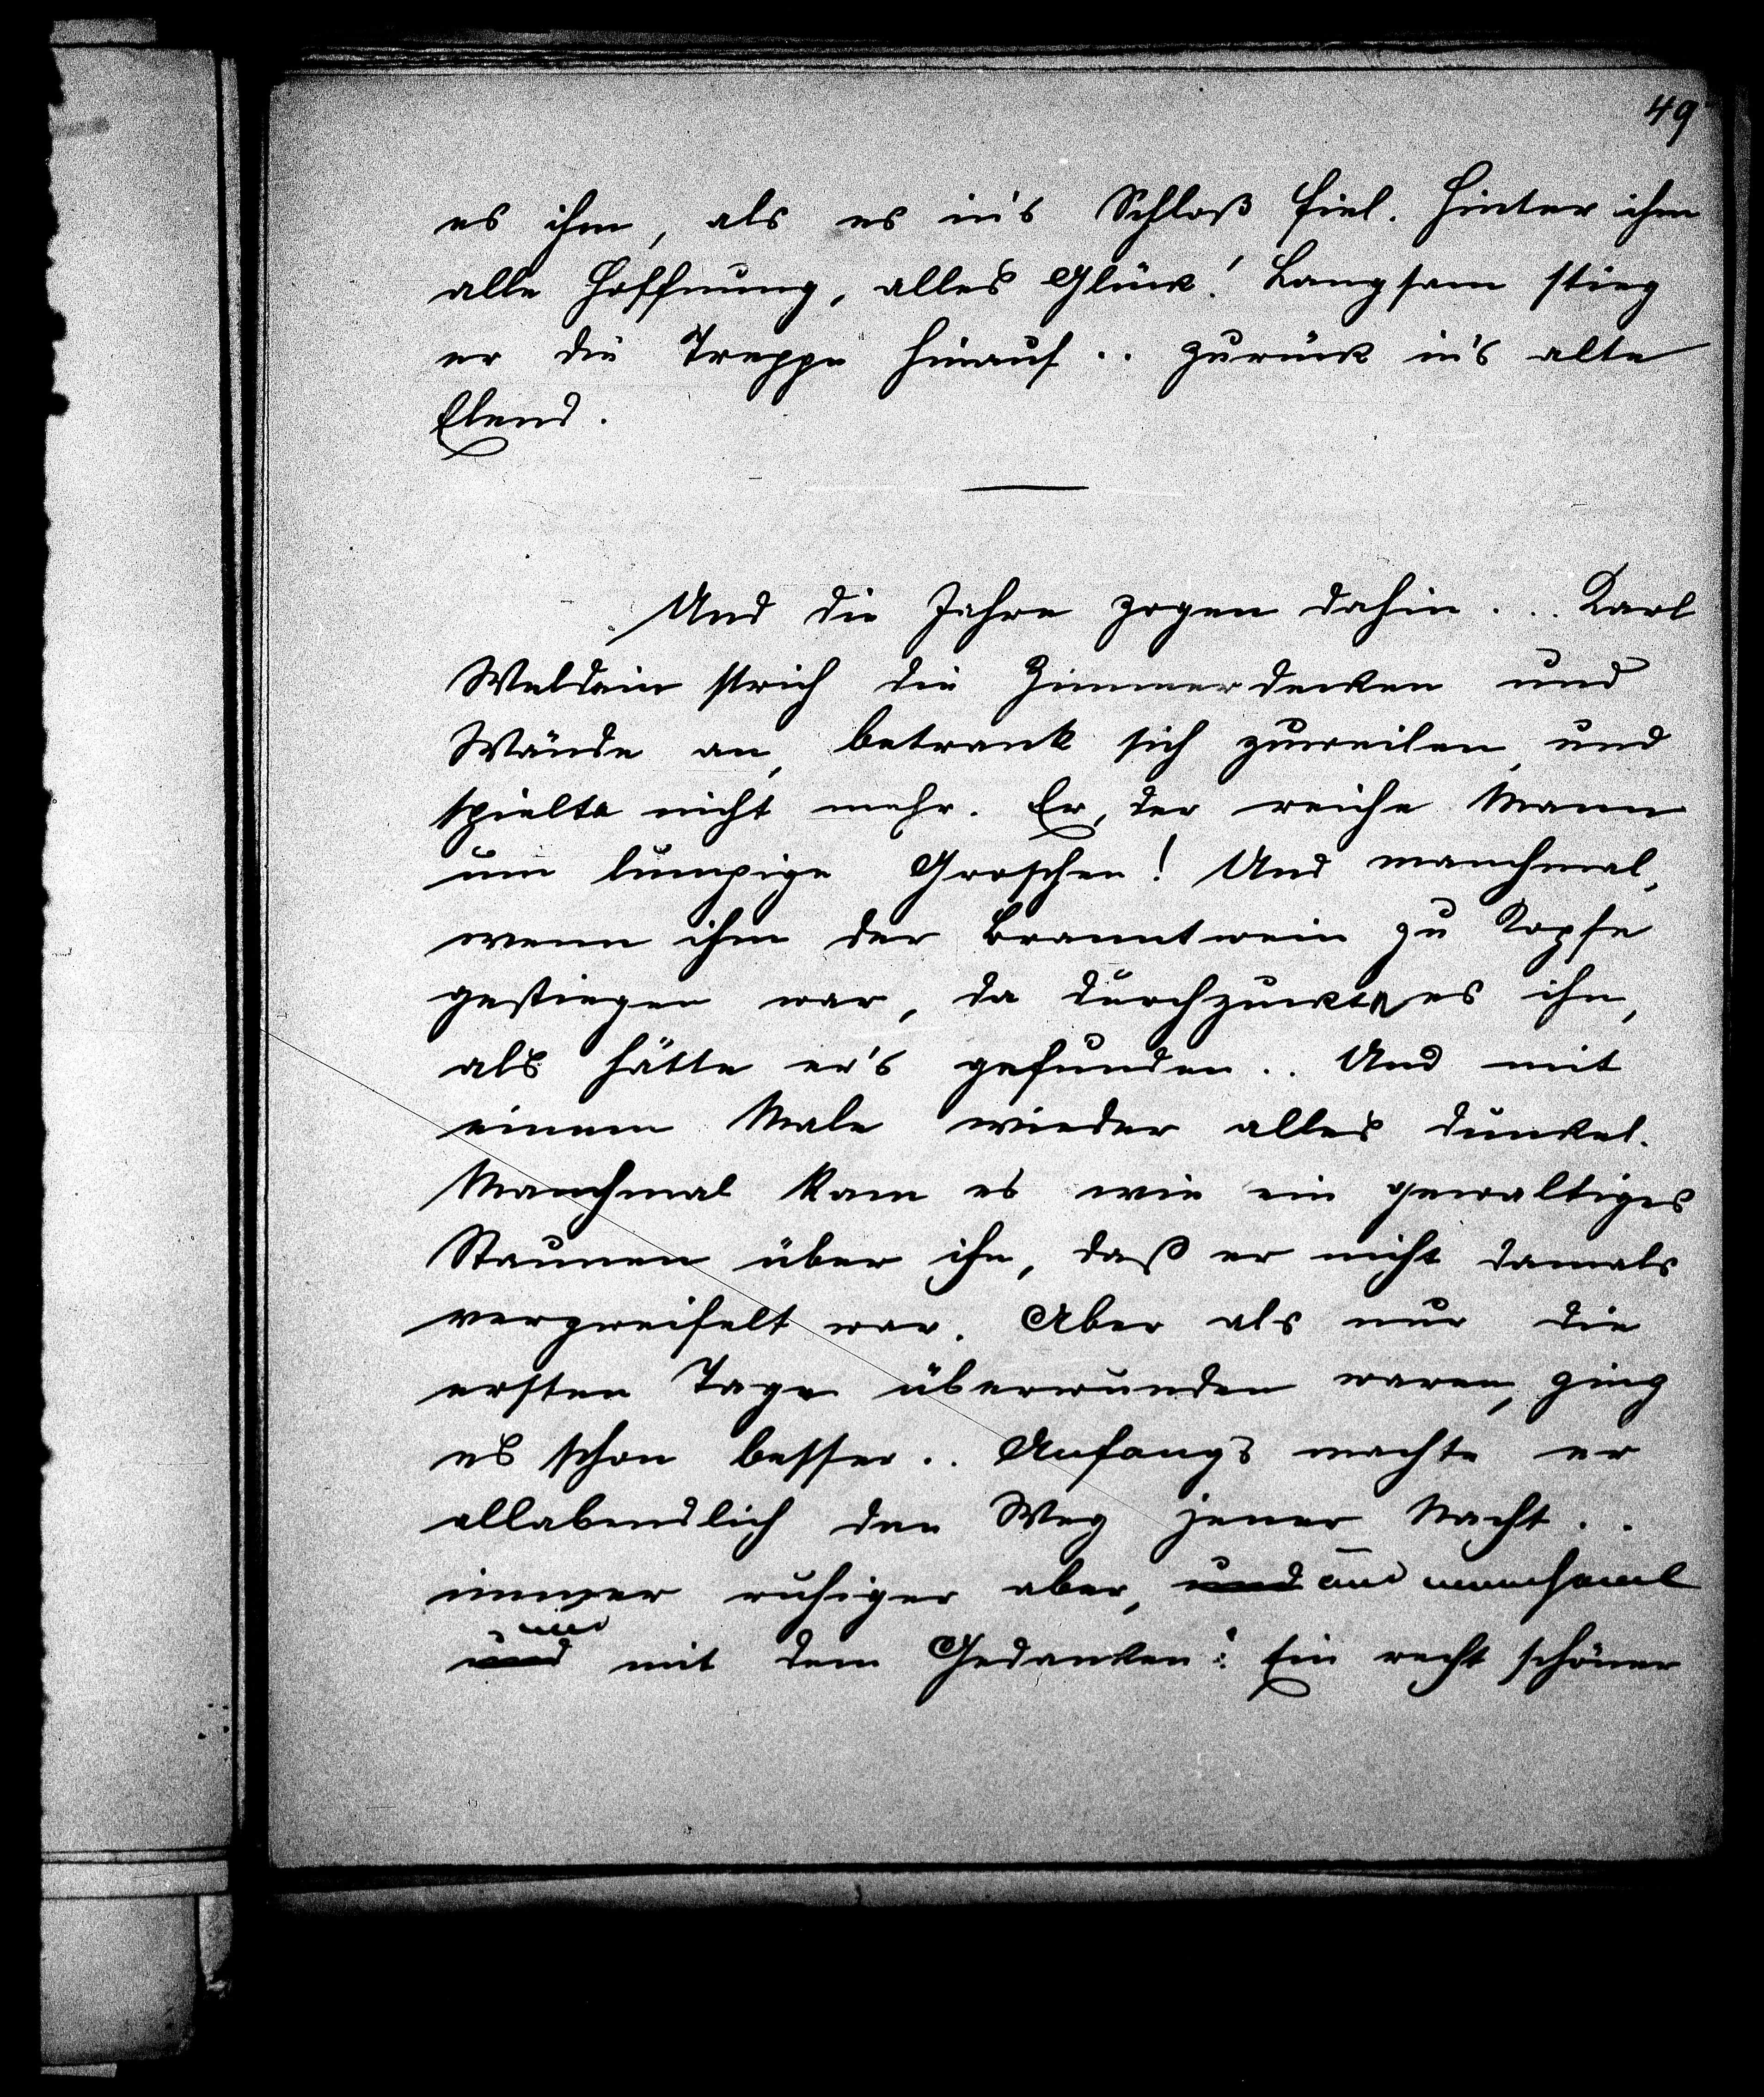 49
es ihm, als es in's Schloß fiel. Hinter ihm
alle Hoffnung, alles Glück! Langsam stieg
er die Treppe hinauf .. zurück in's alte
Elend.
Und die Jahre zogen dahin ... Karl
Weldein strich die Zimmerdecken und
Wände an, betrank sich zuweilen, und
spielte nicht mehr. Er, der reiche Mann
um lumpige Groschen! Und manchmal,
wenn ihm der Branntwein zu Kopfe
gestiegen war, da durchzuckte es ihn,
als hätte er's gefunden .. Und mit
einem Male wieder alles dunkel.
Manchmal kam es wie ein gewaltiges
Staunen über ihn, daß er nicht damals
verzweifelt war. Aber als nur die
ersten Tage überwunden waren, ging
es schon besser .. Anfangs machte er
allabendlich den Weg jener Nacht ..
immer ruhiger aber, und und manchmal
und
und mit dem Gedanken: Ein recht schöner